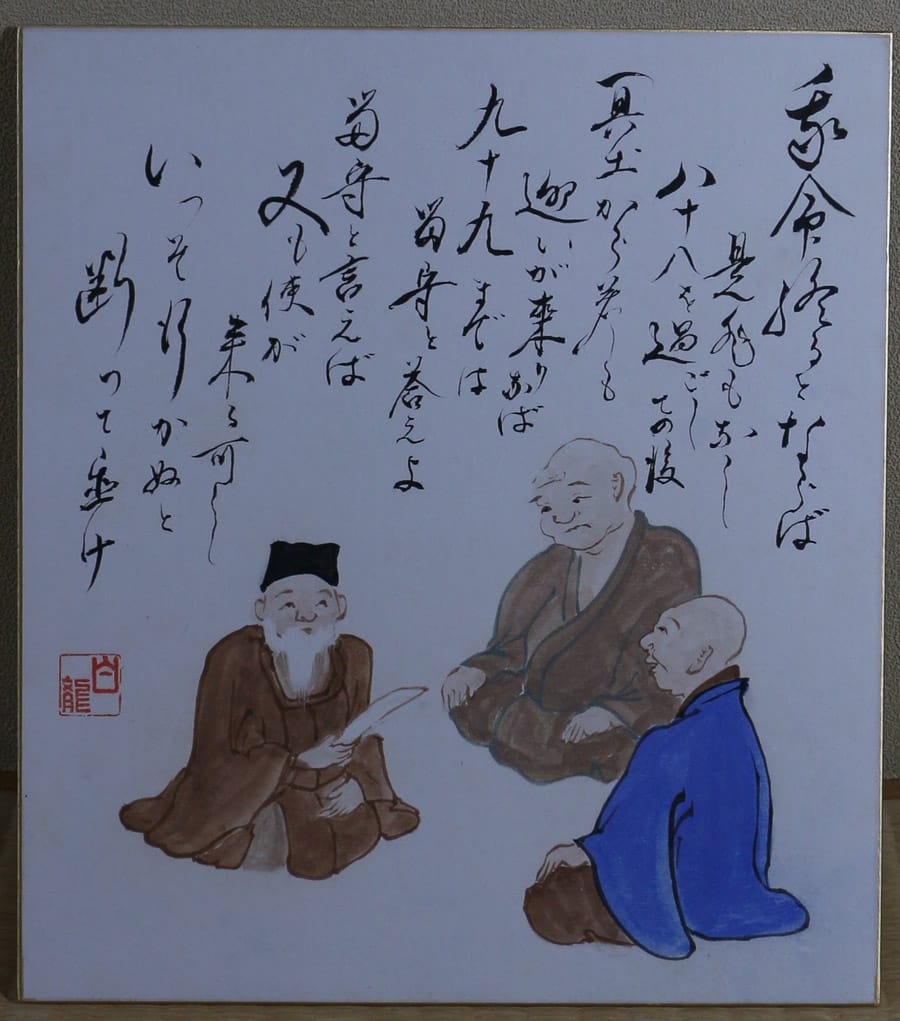 我命終るとならば
是非もなし
八十八を過ごしての後
冥土から若しも
迎いが来りなば
九十九までは
留守と答えよ
留守と言えば
又も使が
来る可し
いっそ行かぬと
断って画け
白龍